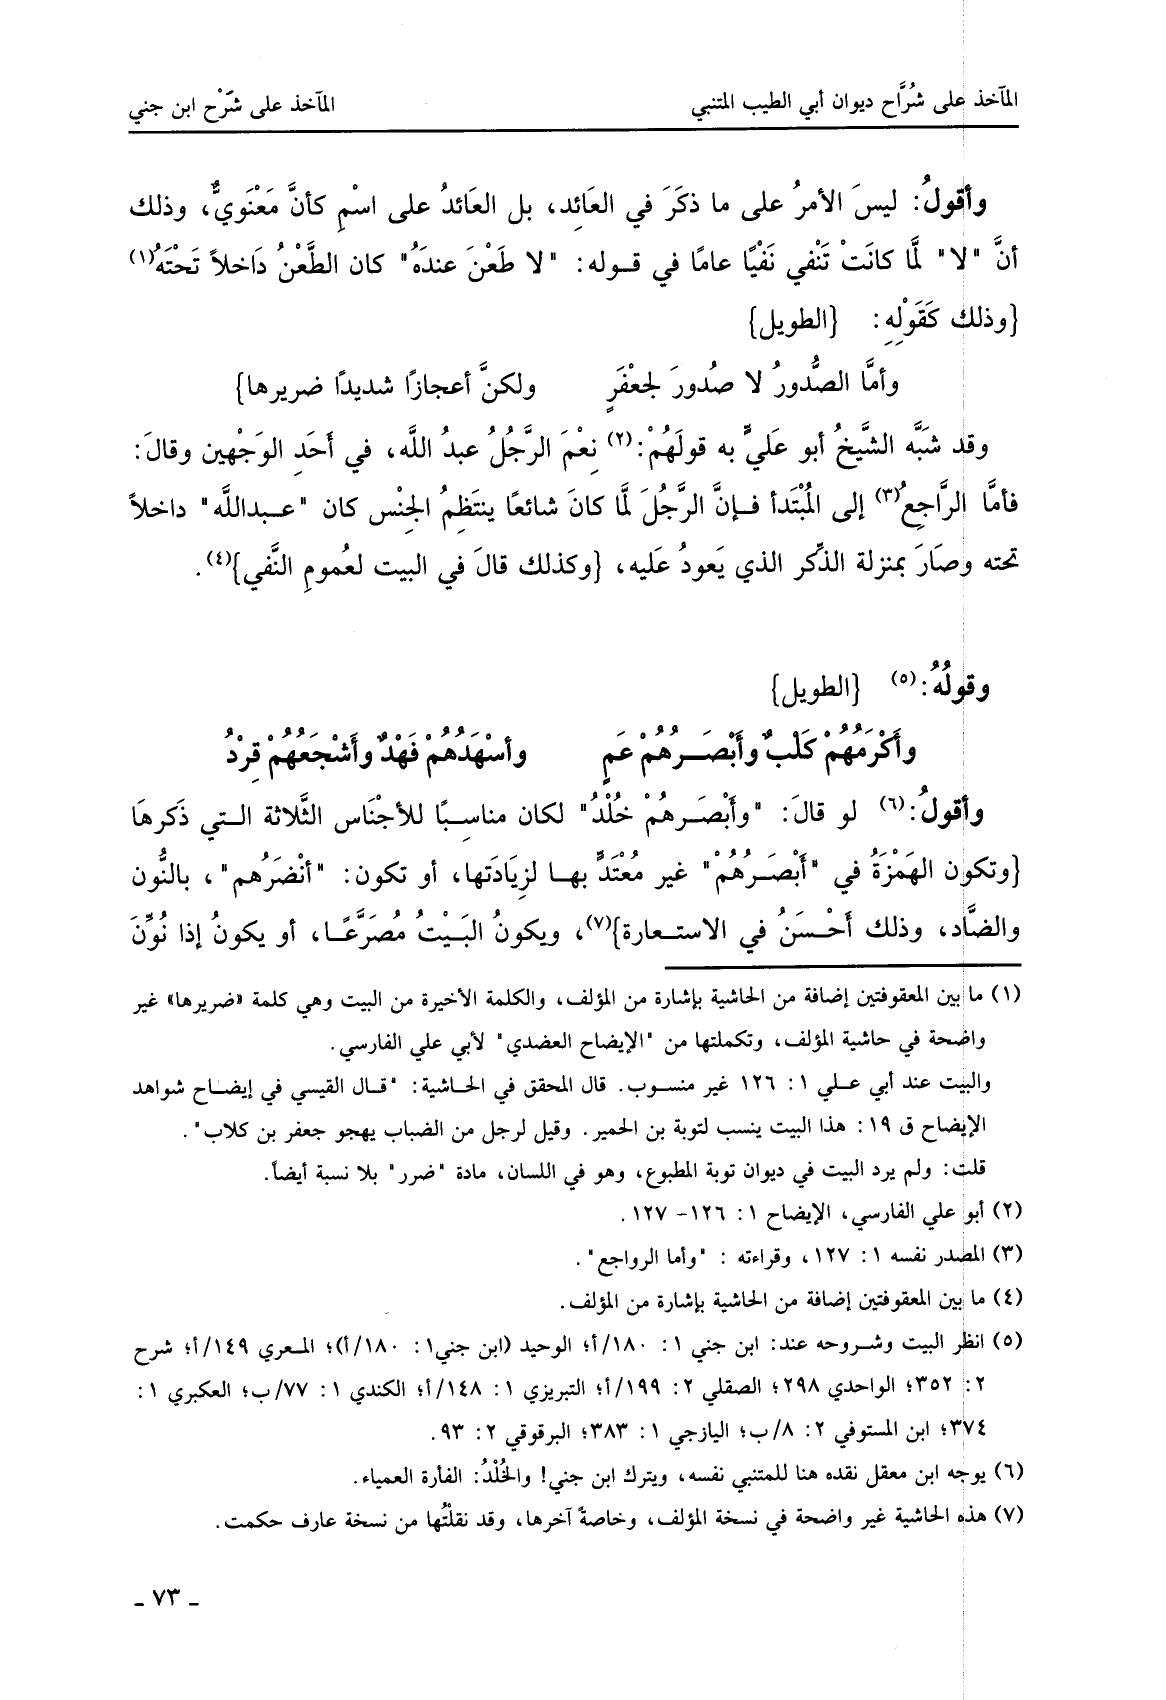 المآخذ على شُرَّاح ديوان أبي الطيب المتنبي المآخذ على شَرْح ابن جني
وأقولُ: ليسَ الأمرُ على ما ذكَرَ في العَائِد، بل العَائدُ على اسْمِ كأنَّ مَعْنَويٌّ، وذلك
أنَّ "لا" لَمَّا كانَتْ تَنْفي نَفْيًا عامًا في قوله: "لا طَعْنَ عندَهُ" كان الطَّعْنُ دَاخلاً تَحْتَهُ(١)
{وذلك كَقَوْلِهِ: {الطويل}
وأمَّا الصُّدورُ لا صُدورَ لجعْفَرٍ ولكنَّ أعجازًا شديدًا ضريرها}
وقد شبَّه الشَّيخُ أبو عَليٍّ به قولَهُمْ:(٢) نِعْمَ الرَّجُلُ عبدُ اللَّه، في أحَدِ الوَجْهين وقالَ:
فأمَّا الرَّاجعُ(٣) إلى المُبْتَدأ فإنَّ الرَّجُلَ لَمَّا كانَ شائعًا ينتَظِمُ الجنْس كان "عبداللَّه" داخلاً
تحته وصَارَ بمنزلة الذِّكر الذي يَعودُ عَليه، {وكذلك قالَ في البيت لعُمومِ النَّفي}(٤).
وقولُهُ:(٥) {الطويل}
وأَكْرَمُهُمْ كَلْبٌ وأَبْصَرُهُمْ عَمٍ وأسْهَدُهُمْ فَهْدٌ وأَشْجَعُهُمْ قِرْدُ
وأقولُ:(٦) لو قالَ: "وأَبْصَرهُمْ خُلْدُ" لكان مناسِبًا للأجْنَاس الثَّلاثة التي ذَكرهَا
{وتكون الهَمْزَةُ في "أَبْصَرُهُمْ" غير مُعْتَدٍّ بها لزِيَادَتها، أو تكون: "أنْضَرُهم"، بالنُّون
والضَّاد، وذلك أَحْسَنُ في الاستعارة}(٧)، ويكونُ البَيْتُ مُصَرَّعًا، أو يكونُ إذا نُوِّنَ
(١) ما بين المعقوفتين إضافة من الحاشية بإشارة من المؤلف، والكلمة الأخيرة من البيت وهي كلمة «ضريرها» غير
واضحة في حاشية المؤلف، وتكملتها من "الإيضاح العضدي" لأبي علي الفارسي.
والبيت عند أبي علي ١: ١٢٦ غير منسوب. قال المحقق في الحاشية: "قال القيسي في إيضاح شواهد
الإيضاح ق ١٩: هذا البيت ينسب لتوبة بن الحمير. وقيل لرجل من الضباب يهجو جعفر بن كلاب".
قلت: ولم يرد البيت في ديوان توبة المطبوع، وهو في اللسان، مادة "ضرر" بلا نسبة أيضاً.
(٢) أبو علي الفارسي، الإيضاح ١: ١٢٦- ١٢٧.
(٣) المصدر نفسه ١: ١٢٧، وقراءته : "وأما الرواجع".
(٤) ما بين المعقوفتين إضافة من الحاشية بإشارة من المؤلف.
(٥) انظر البيت وشروحه عند: ابن جني ١: ١٨٠/أ؛ الوحيد (ابن جني١: ١٨٠/أ)؛ المعري ١٤٩/أ؛ شرح
٢: ٣٥٢؛ الواحدي ٢٩٨؛ الصقلي ٢: ١٩٩/أ؛ التبريزي ١: ١٤٨/أ؛ الكندي ١: ٧٧/ب؛ العكبري ١:
٣٧٤؛ ابن المستوفي ٢: ٨/ب؛ اليازجي ١: ٣٨٣؛ البرقوقي ٢: ٩٣.
(٦) يوجه ابن معقل نقده هنا للمتنبي نفسه، ويترك ابن جني! والخُلْدُ: الفأرة العمياء.
(٧) هذه الحاشية غير واضحة في نسخة المؤلف، وخاصةً آخرها، وقد نقلْتُها من نسخة عارف حكمت.
ـ ٧٣ ـ